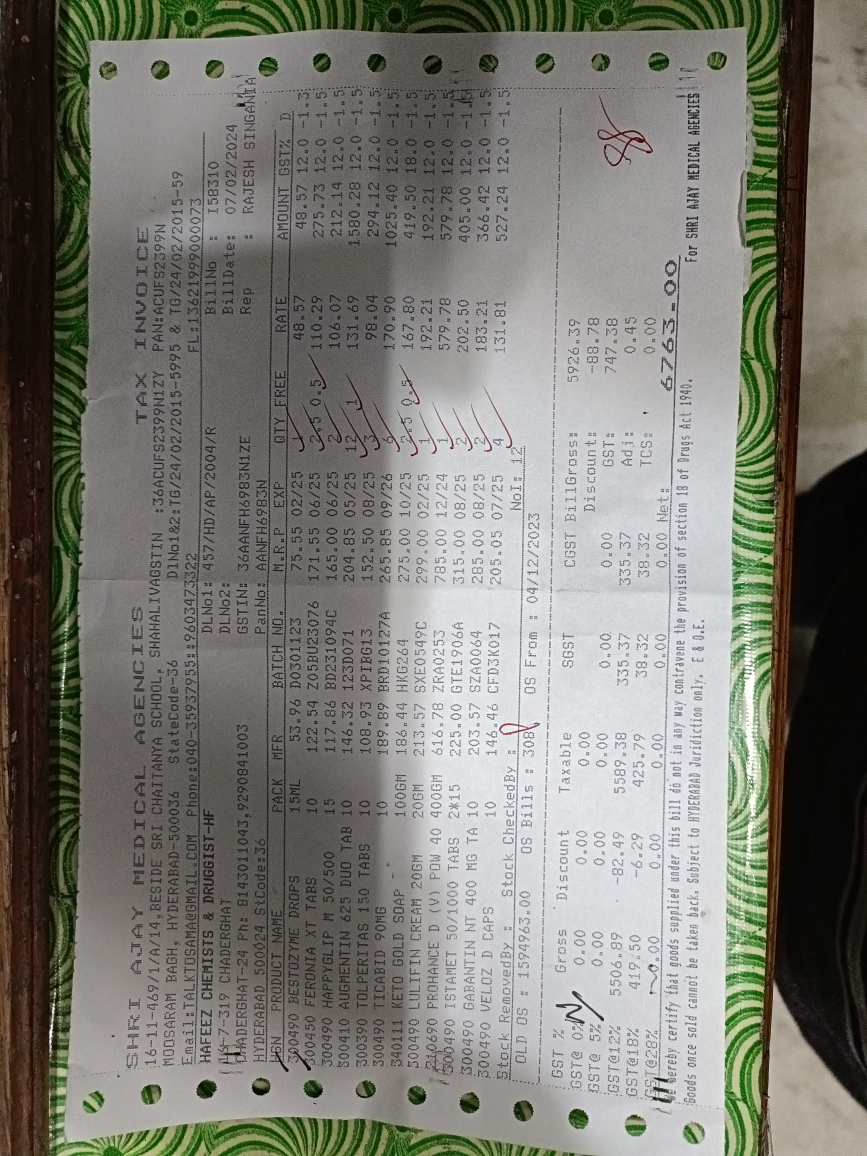 SHRI AJAY MEDICAL AGENCIES TAX INVOICE
16-11-469/1/A/14,BESIDE SRI CHAITANYA SCHOOL, SHAHALIVAGSTIN :36ACUFS2399N1ZY PAN:ACUFS2399N
MOOSARAM BAGH, HYDERABAD-500036 StateCode-36 DlNo1&2:TG/24/02/2015-5995 & TG/24/02/2015-59
Email:TALKTOSAMA@GMAIL.COM Phone:040-35937955::9603473322 FL:13621999000073
HAFEEZ CHEMISTS & DRUGGIST-HF DLNo1: 457/HD/AP/2004/R BillNo : I58310
16-7-319 CHADERGHAT DLNo2: BillDate: 07/02/2024
CHADERGHAT-24 Ph: 8143011043,9290841003 GSTIN: 36AANFH6983N1ZE Rep : RAJESH SINGANIA
HYDERABAD 500024 StCode:36 PanNo: AANFH6983N
HSN PRODUCT NAME PACK MFR BATCH NO. M.R.P EXP QTY FREE RATE AMOUNT GST% D
300490 BESTOZYME DROPS 15ML 53.96 DO301123 75.55 02/25 1 48.57 48.57 12.0 -1.5
300450 FERONIA XT TABS 10 122.54 Z05BU23076 171.55 06/25 2.5 0.5 110.29 275.73 12.0 -1.5
300490 HAPPYGLIP M 50/500 15 117.86 BD231094C 165.00 06/25 2 106.07 212.14 12.0 -1.5
300410 AUGMENTIN 625 DUO TAB 10 146.32 123D071 204.85 05/25 12 1 131.69 1580.28 12.0 -1.5
300390 TOLPERITAS 150 TABS 10 108.93 XPIBG13 152.50 08/25 3 98.04 294.12 12.0 -1.5
300490 TICABID 90MG 10 189.89 BRD10127A 265.85 09/26 6 170.90 1025.40 12.0 -1.5
340111 KETO GOLD SOAP 100GM 186.44 HKG264 275.00 10/25 2.5 0.5 167.80 419.50 18.0 -1.5
300490 LULIFIN CREAM 20GM 20GM 213.57 SXE0549C 299.00 02/25 1 192.21 192.21 12.0 -1.5
210690 PROHANCE D (V) POW 40 400GM 616.78 ZRA0253 785.00 12/24 1 579.78 579.78 12.0 -1.5
300490 ISTAMET 50/1000 TABS 2*15 225.00 GTE1906A 315.00 08/25 2 202.50 405.00 12.0 -1.5
300490 GABANTIN NT 400 MG TA 10 203.57 SZA0064 285.00 08/25 2 183.21 366.42 12.0 -1.5
300490 VELOZ D CAPS 10 146.46 CFD3K017 205.05 07/25 4 131.81 527.24 12.0 -1.5
Stock RemovedBy : Stock CheckedBy : NoI: 12
OLD OS : 1594963.00 OS Bills : 308 OS From : 04/12/2023
GST % Gross Discount Taxable SGST CGST BillGross: 5926.39
GST@ 0% 0.00 0.00 0.00 0.00 0.00 Discount: -88.78
GST@ 5% 0.00 0.00 0.00 GST: 747.38
GST@12% 5506.89 -82.49 5589.38 335.37 335.37 Adj: 0.45
GST@18% 419.50 -6.29 425.79 38.32 38.32 TCS: 0.00
GST@28% 0.00 0.00 0.00 0.00 0.00 Net: 6763.00
We hereby certify that goods supplied under this bill do not in any way contravene the provision of section 18 of Drugs Act 1940.
Goods once sold cannot be taken back. Subject to HYDERABAD Juridiction only. E & O.E. For SHRI AJAY MEDICAL AGENCIES